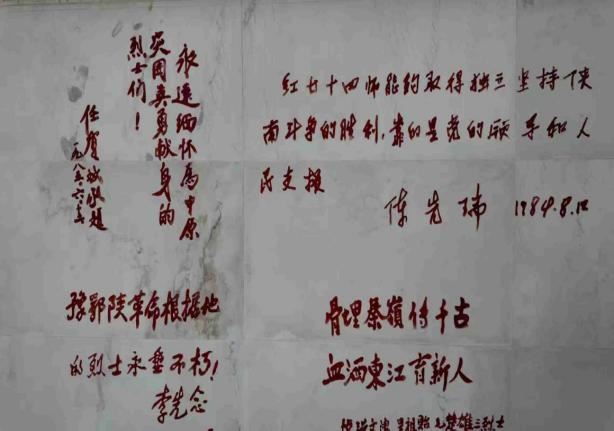 永远缅怀为中原
突围英勇献身的
烈士们！
任质斌敬题
一九八五.六.五
红七十四师能够取得独立坚持陕
南斗争的胜利，靠的是党的领导和人
民支援
陈先瑞 1984.8.12
豫鄂陕革命根据地
的烈士永垂不朽！
李先念
骨埋秦嶺传千古
血洒東江育新人